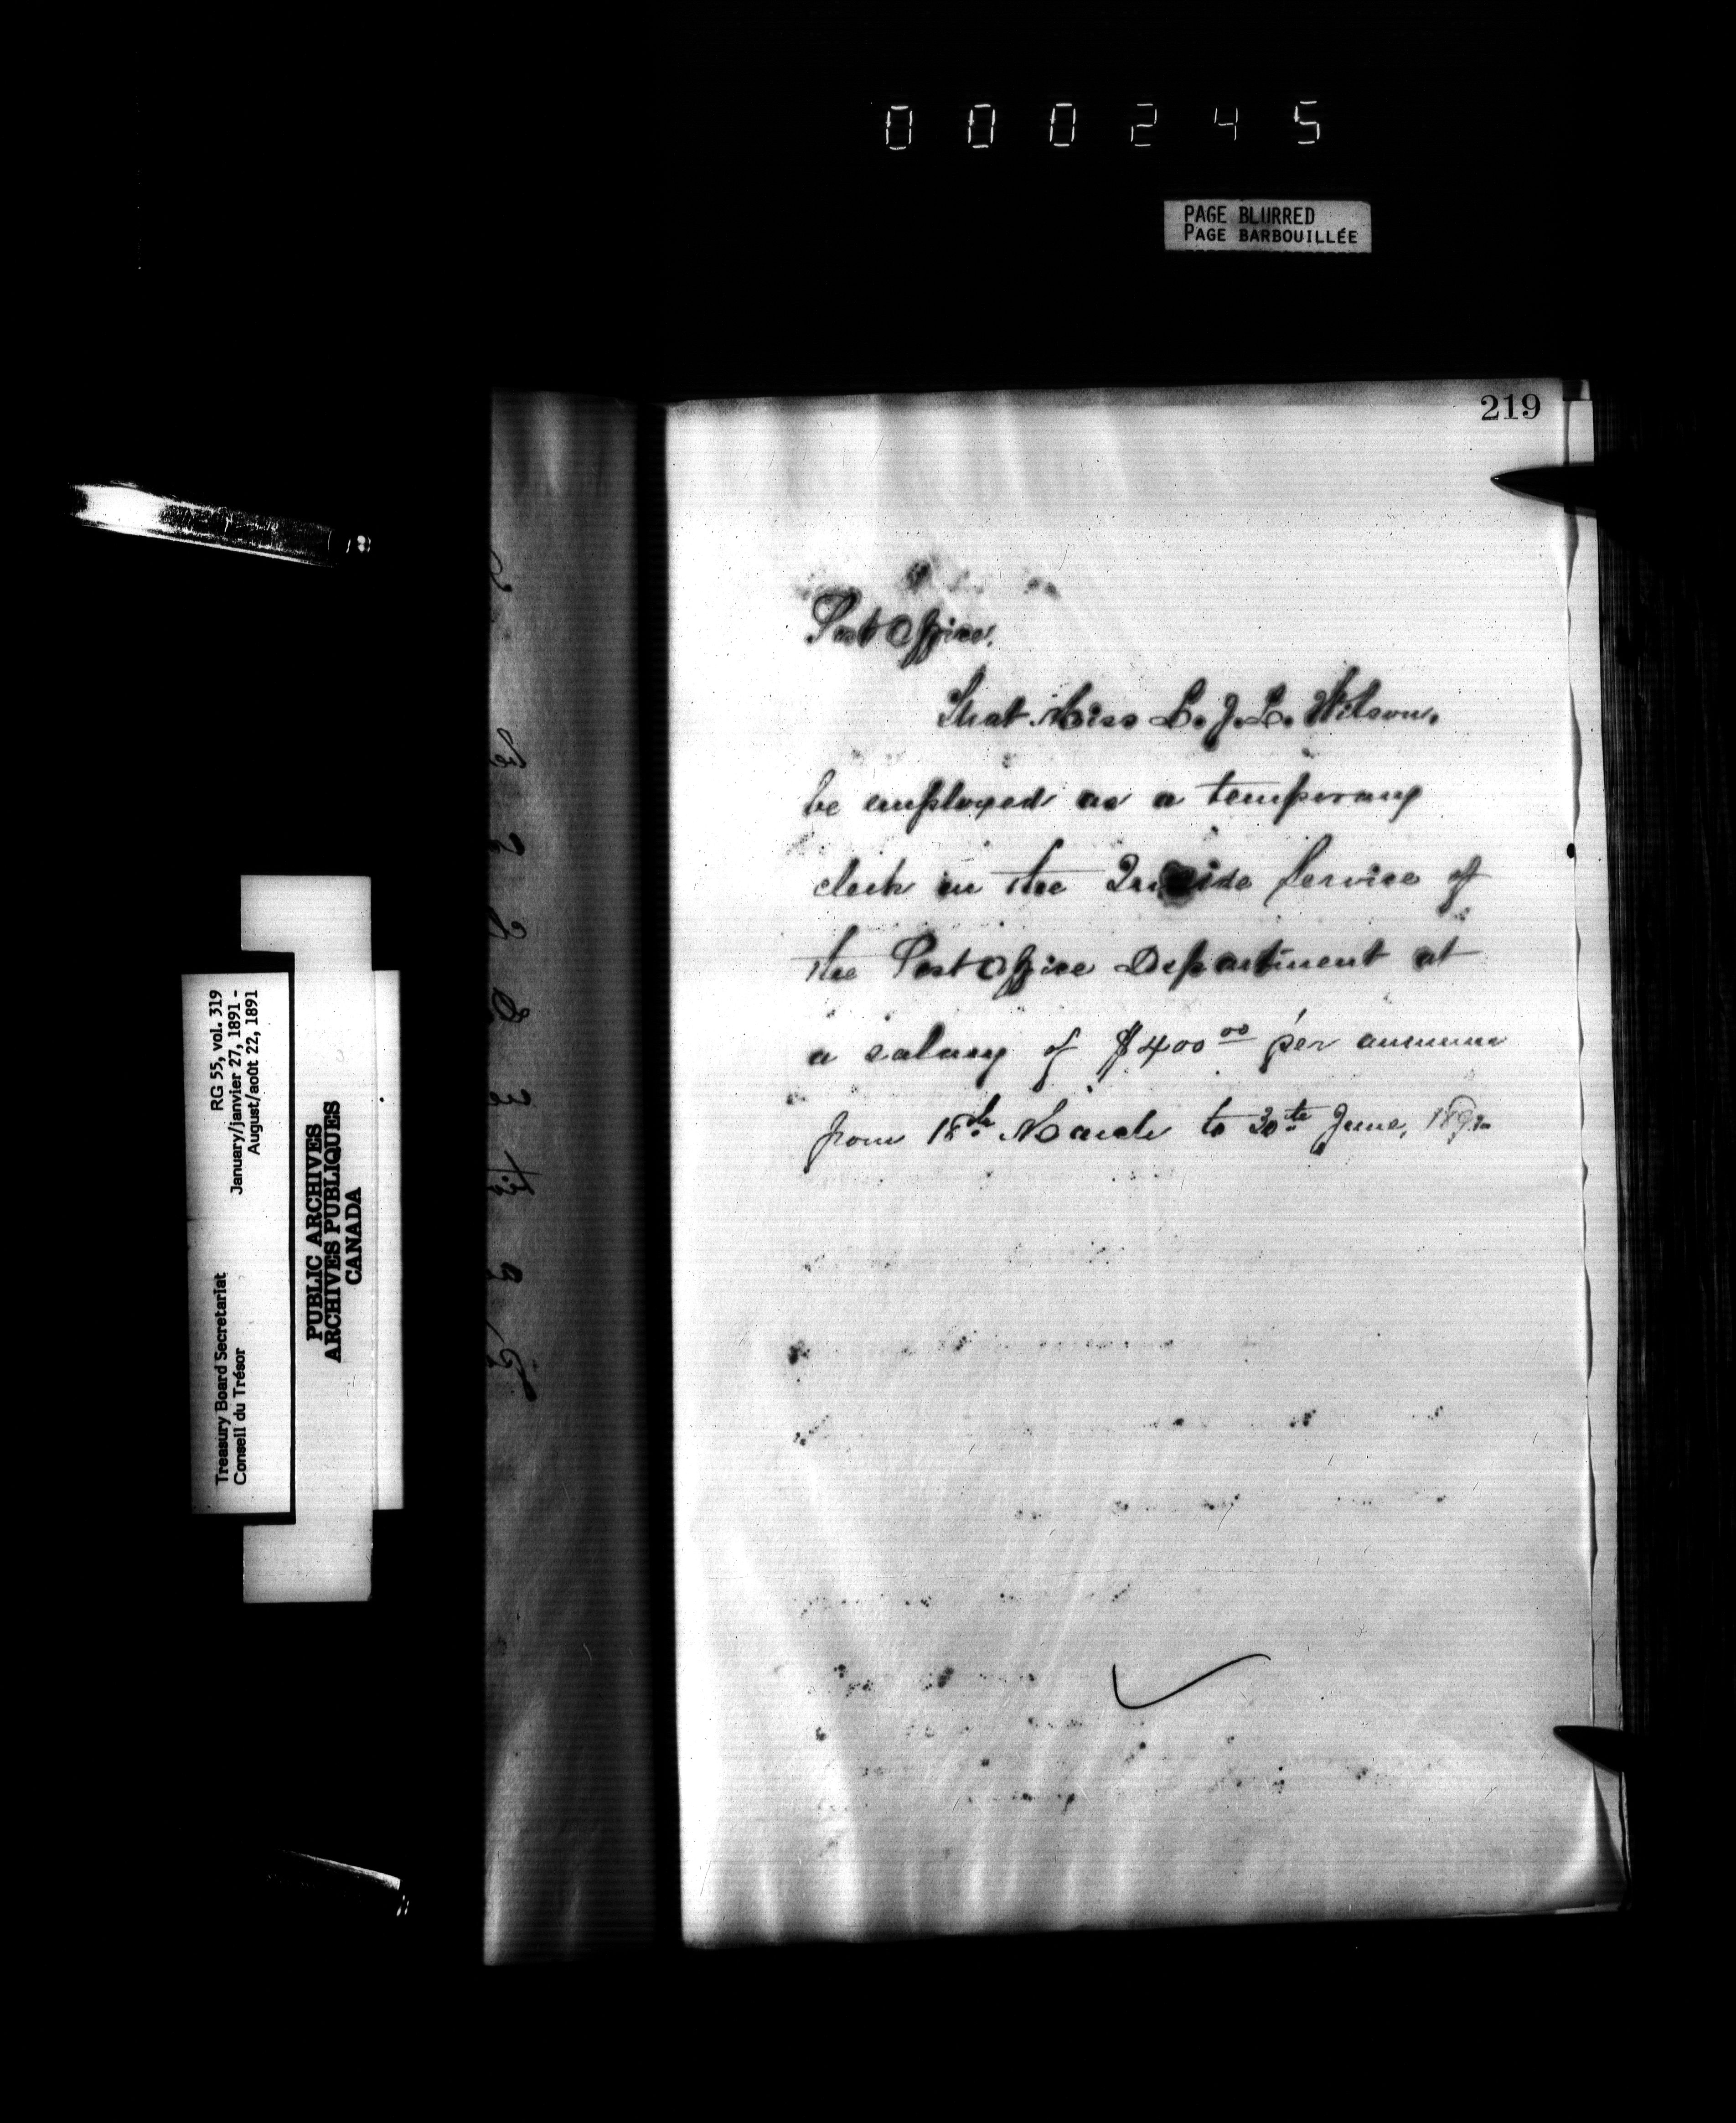 000245
PAGE BLURRED
PAGE BARBOUILLÉE
219
Post Office.
That Miss L. J. L. Wilson,
be employed as a temporary
clerk in the Inside Service of
the Post Office Department at
a salary of $400 00 per annum
from 18th March to 30th June, 1891
RG 55, vol. 319
January/janvier 27, 1891 -
August/août 22, 1891
Treasury Board Secretariat
Conseil du Trésor
PUBLIC ARCHIVES
ARCHIVES PUBLIQUES
CANADA